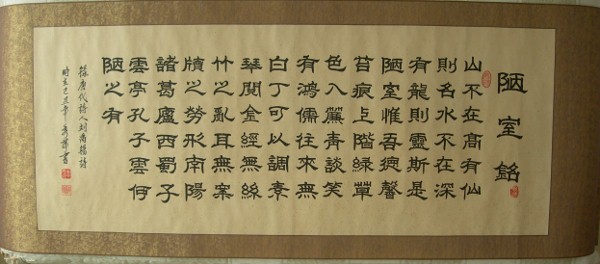 陋室銘
山不在高有仙
則名水不在深
有龍則靈斯是
陋室惟吾德馨
苔痕上階綠草
色入簾青談笑
有鴻儒往來無
白丁可以調素
琴閱金經無絲
竹之亂耳無案
牘之勞形南陽
諸葛廬西蜀子
雲亭孔子雲何
陋之有
唐代詩人劉禹錫詩
己丑年書